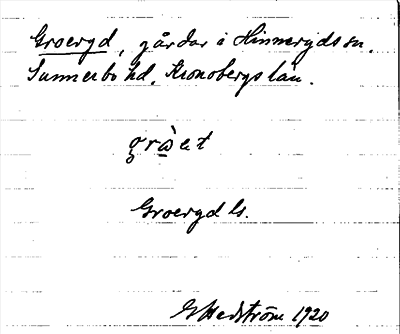 Groeryd, gårdar i Hinneryds sn.
Sunnerbo hd. Kronobergs län.
Groeryd ls.
G Hedström 1920